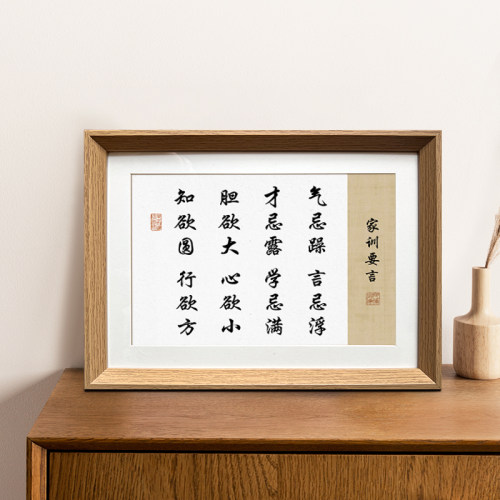 家训要言
气忌躁 言忌浮
才忌露 学忌满
胆欲大 心欲小
知欲圆 行欲方